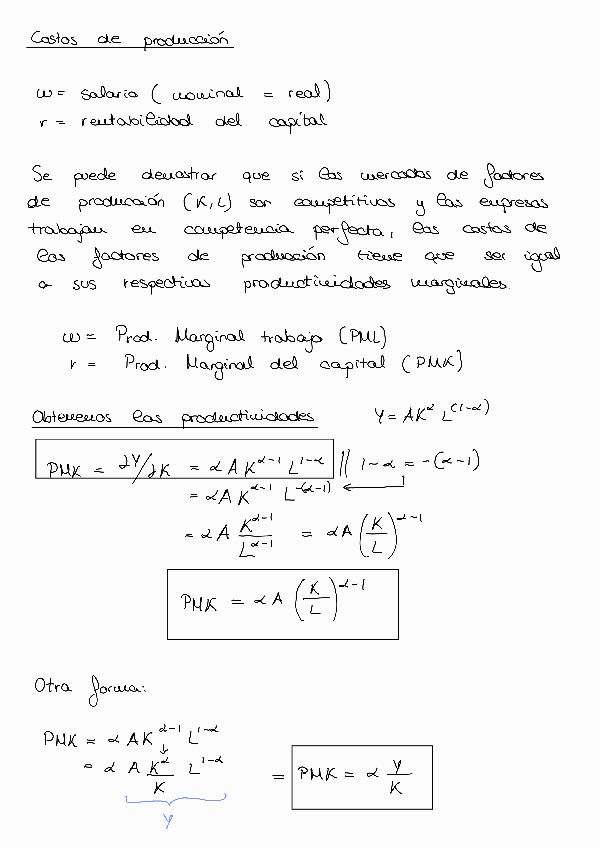 Costos de producción
w = salario ( nominal = real)
r = rentabilidad del capital
Se puede demostrar que si los mercados de factores
de producción (K,L) son competitivos y las empresas
trabajan en competencia perfecta, los costos de
los factores de producción tiene que ser igual
a sus respectivas productividades marginales.
w = Prod. Marginal trabajo (PML)
r = Prod. Marginal del capital (PMK)
Obtenemos las productividades Y = AK^α L^(1-α)
PMK = ∂Y/∂K = α A K^α-1 L^1-α // 1-α = -(α-1)
= αA K^α-1 L^-(α-1)
= αA K^α-1 / L^α-1 = αA (K/L)^α-1
PMK = αA (K/L)^α-1
Otra forma:
PMK = α AK^α-1 L^1-α
= α A K^α/K L^1-α = PMK = α Y/K
Y